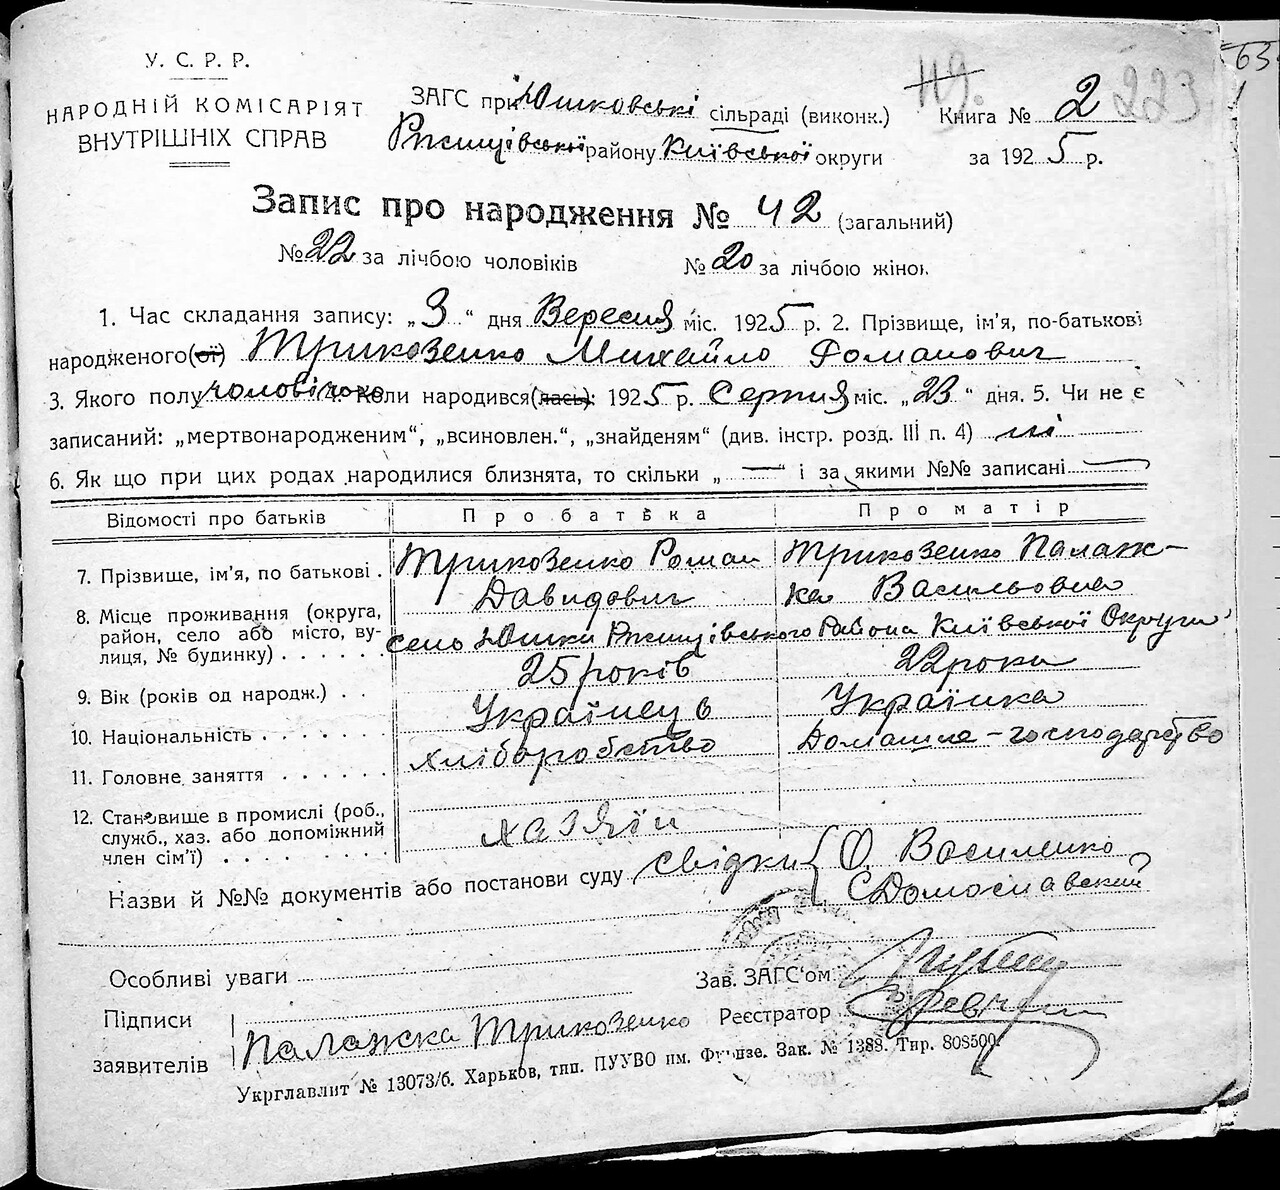 У. С. Р. Р.
НАРОДНІЙ КОМІСАРІЯТ
ВНУТРІШНІХ СПРАВ
ЗАГС при Юшковські сільраді (виконк.)
Ржищівської району Київської округи
119. 223
Книга № 2
за 1925 р.
63
Запис про народження № 42 (загальний)
№ 22 за лічбою чоловіків № 20 за лічбою жінок
1. Час складання запису: „3“ дня Вересня міс. 1925 р. 2. Прізвище, ім’я, по-батькові
народженого(ої) Трикозенко Михайло Романович
3. Якого полу чоловічого коли народився(лась): 1925 р. Серпня міс. „23“ дня. 5. Чи не є
записаний: „мертвонародженим“, „всиновлен.“, „знайденям“ (див. інстр. розд. III п. 4) ні
6. Як що при цих родах народилися близнята, то скільки „—“ і за якими №№ записані —
Відомості про батьків Про батька Про матір
7. Прізвище, ім’я, по батькові . Трикозенко Роман Давидович Трикозенко Палажка Васильовна
8. Місце проживання (округа, район, село або місто, вулиця, № будинку) . . . . . . село Юшки Ржищівського Района Київської Округи
9. Вік (років од народж.) . . 25 років 22 роки
10. Національність . . . . . . . Українець Українка
11. Головне заняття . . . . . . хліборобство Домашнє-господарство
12. Становище в промислі (роб., служб., хаз. або допоміжний член сім’ї) . . . . . . . . . . хазяїн
Назви й №№ документів або постанови суду свідки { О. Василенко
С Домославский
Особливі уваги
Зав. ЗАГС‘ом
Підписи
заявителів Палажка Трикозенко
Реєстратор
Укрглавлит № 13073/б. Харьков, тип. ПУУВО им. Фрунзе. Зак. № 1388. Тир. 808500.